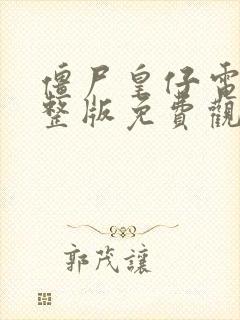 僵尸皇仔電
整版免費觀
郭茂讓